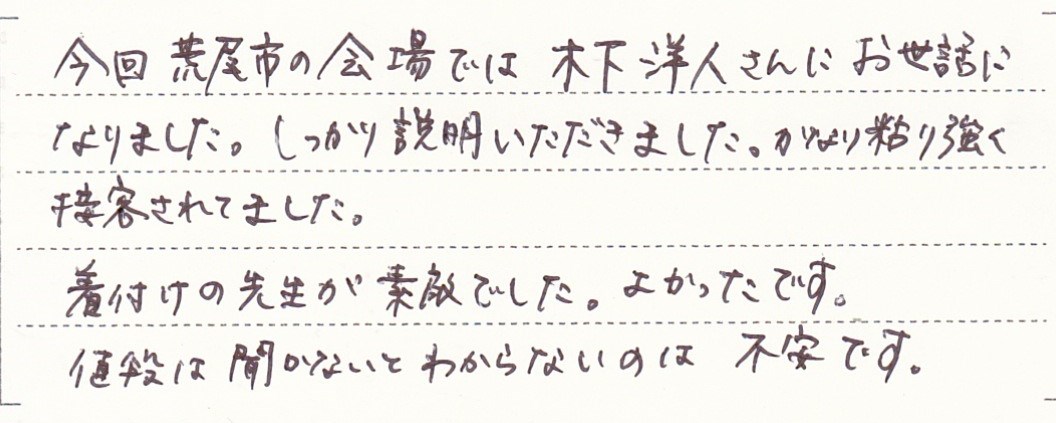 今回 荒尾市の会場では 木下洋人さんに お世話に
なりました。しっかり説明いただきました。かなり粘り強く
接客されてました。
着付けの先生が素敵でした。よかったです。
値段は聞かないとわからないのは 不安です。